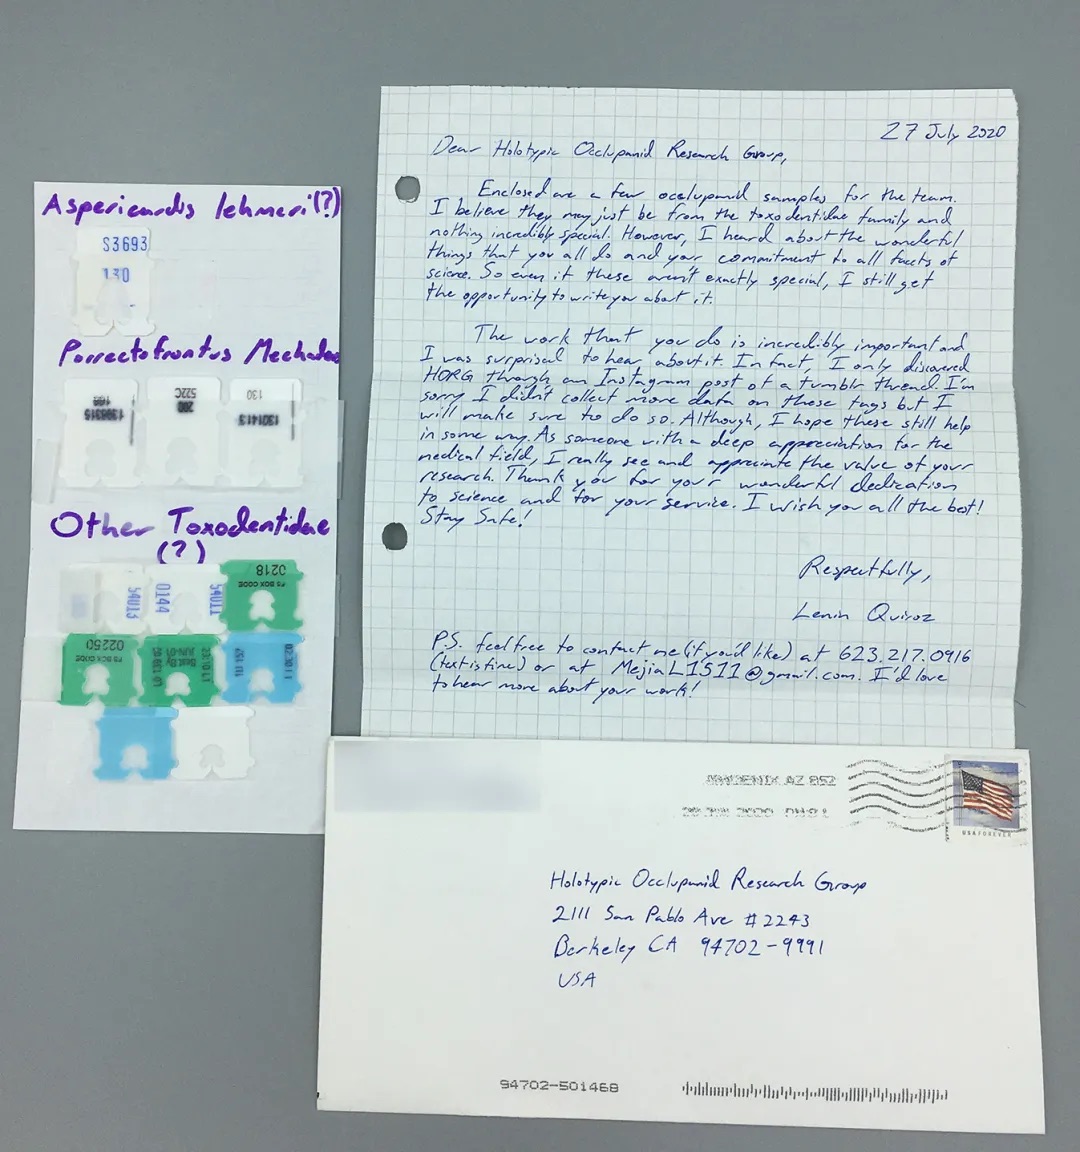 Aspericardis lehmeri(?)
S3693
130
Porrectofrontus Mechadae
1398315
160
522C
200
130
1301413
Other Toxodentidae
(?)
54013
0144
54011
0218
FG BOX CODE
02250
FG BOX CODE
11 157
27 July 2020
Dear Holotypic Occlupanid Research Group,
Enclosed are a few occlupanid samples for the team.
I believe they may just be from the toxodentidae family and
nothing incredibly special. However, I heard about the wonderful
things that you all do and your commitment to all facets of
science. So even if these aren't exactly special, I still get
the opportunity to write you about it.
The work that you do is incredibly important and
I was surprised to hear about it. In fact, I only discovered
HORG through an Instagram post of a tumblr thread. I'm
sorry I didn't collect more data on these tags but I
will make sure to do so. Although, I hope these still help
in some way. As someone with a deep appreciation for the
medical field, I really see and appreciate the value of your
research. Thank you for your wonderful dedication
to science and for your service. I wish you all the best!
Stay Safe!
Respectfully,
Lenin Quiroz
P.S. feel free to contact me (if you'd like) at 623.217.0916
(text is fine) or at MejiaL1511@gmail.com. I'd love
to hear more about your work!
PHOENIX AZ 852
2020
USA FOREVER
Holotypic Occlupanid Research Group
2111 San Pablo Ave #2243
Berkeley CA 94702-9991
USA
94702-501468